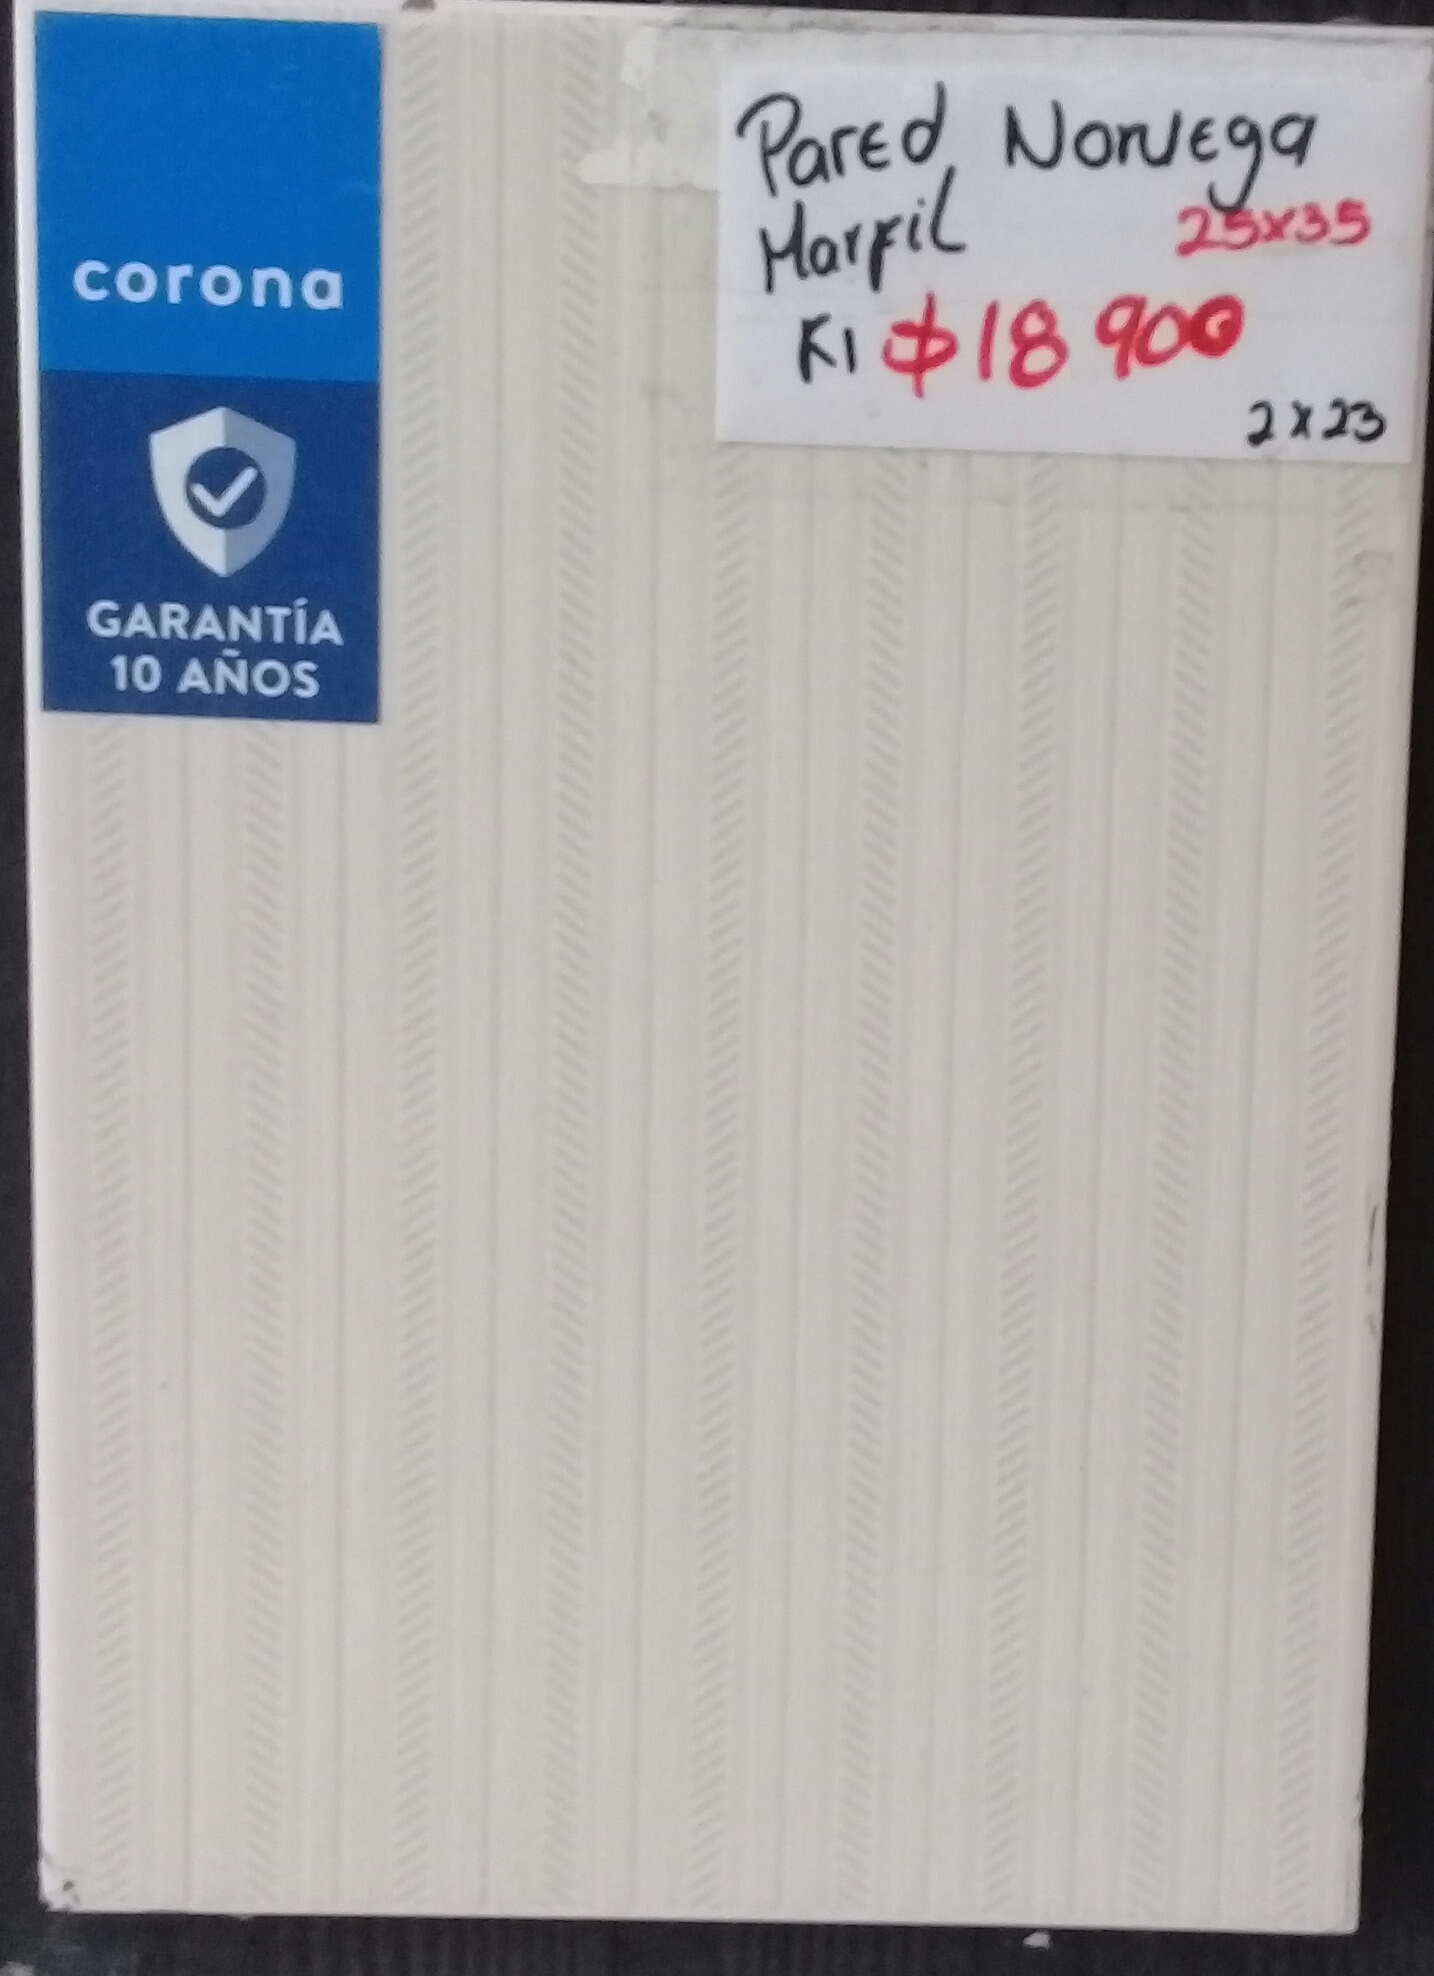 corona
GARANTÍA
10 AÑOS
Pared Noruega
Marfil 25x35
K1 $18 900
2x23